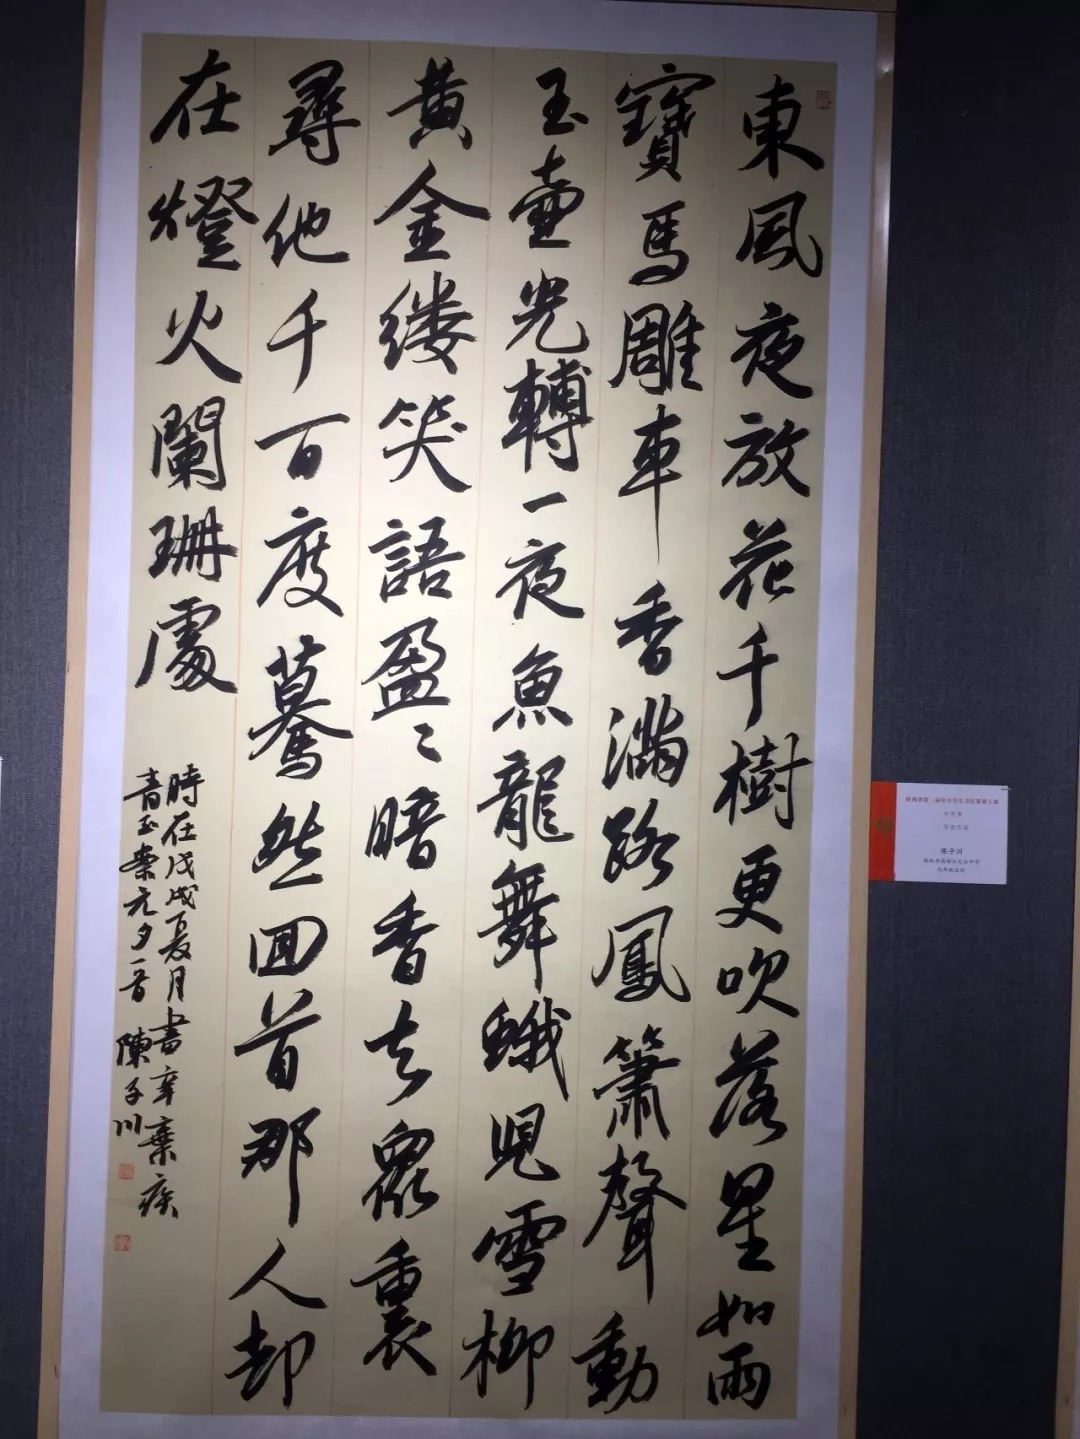 東風夜放花千樹更吹落星如雨
寶馬雕車香滿路鳳簫聲動
玉壺光轉一夜魚龍舞蛾児雪柳
黄金缕笑語盈〻暗香去眾裏
尋他千百度驀然回首那人却
在燈火闌珊處
時在戊戌夏月書辛棄疾
青玉案元夕一首 陳子川
陈子川